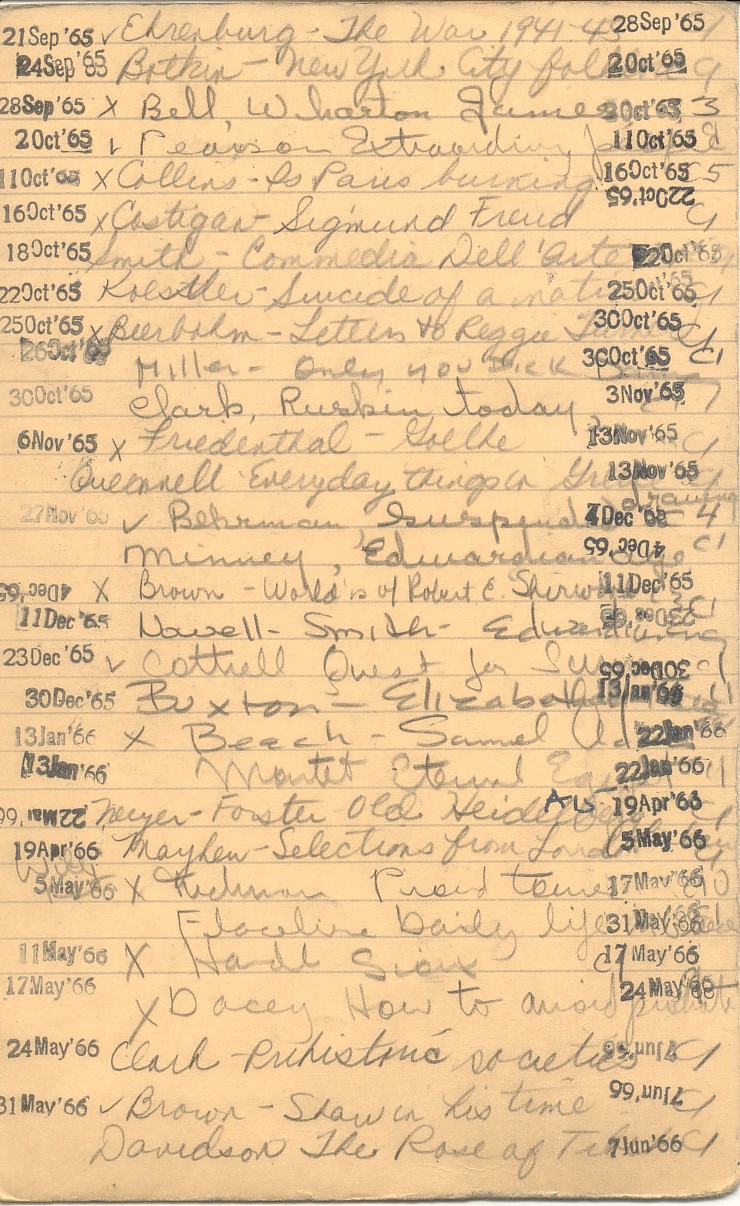 21Sep'65 ✓ Ehrenburg - The War 1941-45 28Sep'65
24Sep'65 Botkin - New York City folk 2Oct'65
28Sep'65 X Bell, Wharton James 2Oct'65 3
2Oct'65 ✓ Pearson Extraordinary 11Oct'65
11Oct'65 X Collins - Is Paris burning 16Oct'65
16Oct'65 X Costigan - Sigmund Freud 22Oct'65
18Oct'65 Smith - Commedia Dell'arte 22Oct'65
22Oct'65 Koestler - Suicide of a nation 25Oct'65
25Oct'65 X Beerbohm - Letters to Reggie 30Oct'65
26Oct'65 Miller - Only you Dick 30Oct'65
30Oct'65 Clark, Ruskin today 3Nov'65
6Nov'65 X Friedenthal - Goethe 13Nov'65
Quennell Everyday things in 13Nov'65
27Nov'65 ✓ Behrman Suspended drawing 4
Minney, Edwardian Age 4Dec'65
4Dec'65 X Brown - Worlds of Robert E. Sherwood 11Dec'65
11Dec'65 Nowell-Smith - Edwardian Eng 23Dec'65
23Dec'65 ✓ Cottrell Quest for 30Dec'65
30Dec'65 Buxton - Elizabethan 13Jan'66
13Jan'66 X Beach - Samuel 22Jan'66
13Jan'66 Montet Eternal Egypt 22Jan'66
22Mar'66 Meyer-Forster Old Heidelberg 19Apr'66
19Apr'66 Mayhew - Selections from London 5May'66
5May'66 X Proud tower 17May'66
Flaceliere Daily life 31May'66
11May'66 X 17May'66
17May'66 X Dacey How to avoid probate 24May'66
24May'66 Clark - Prehistoric societies 7Jun'66
31May'66 ✓ Brown - Shaw in his time 7Jun'66
Davidson The Rose of 7Jun'66